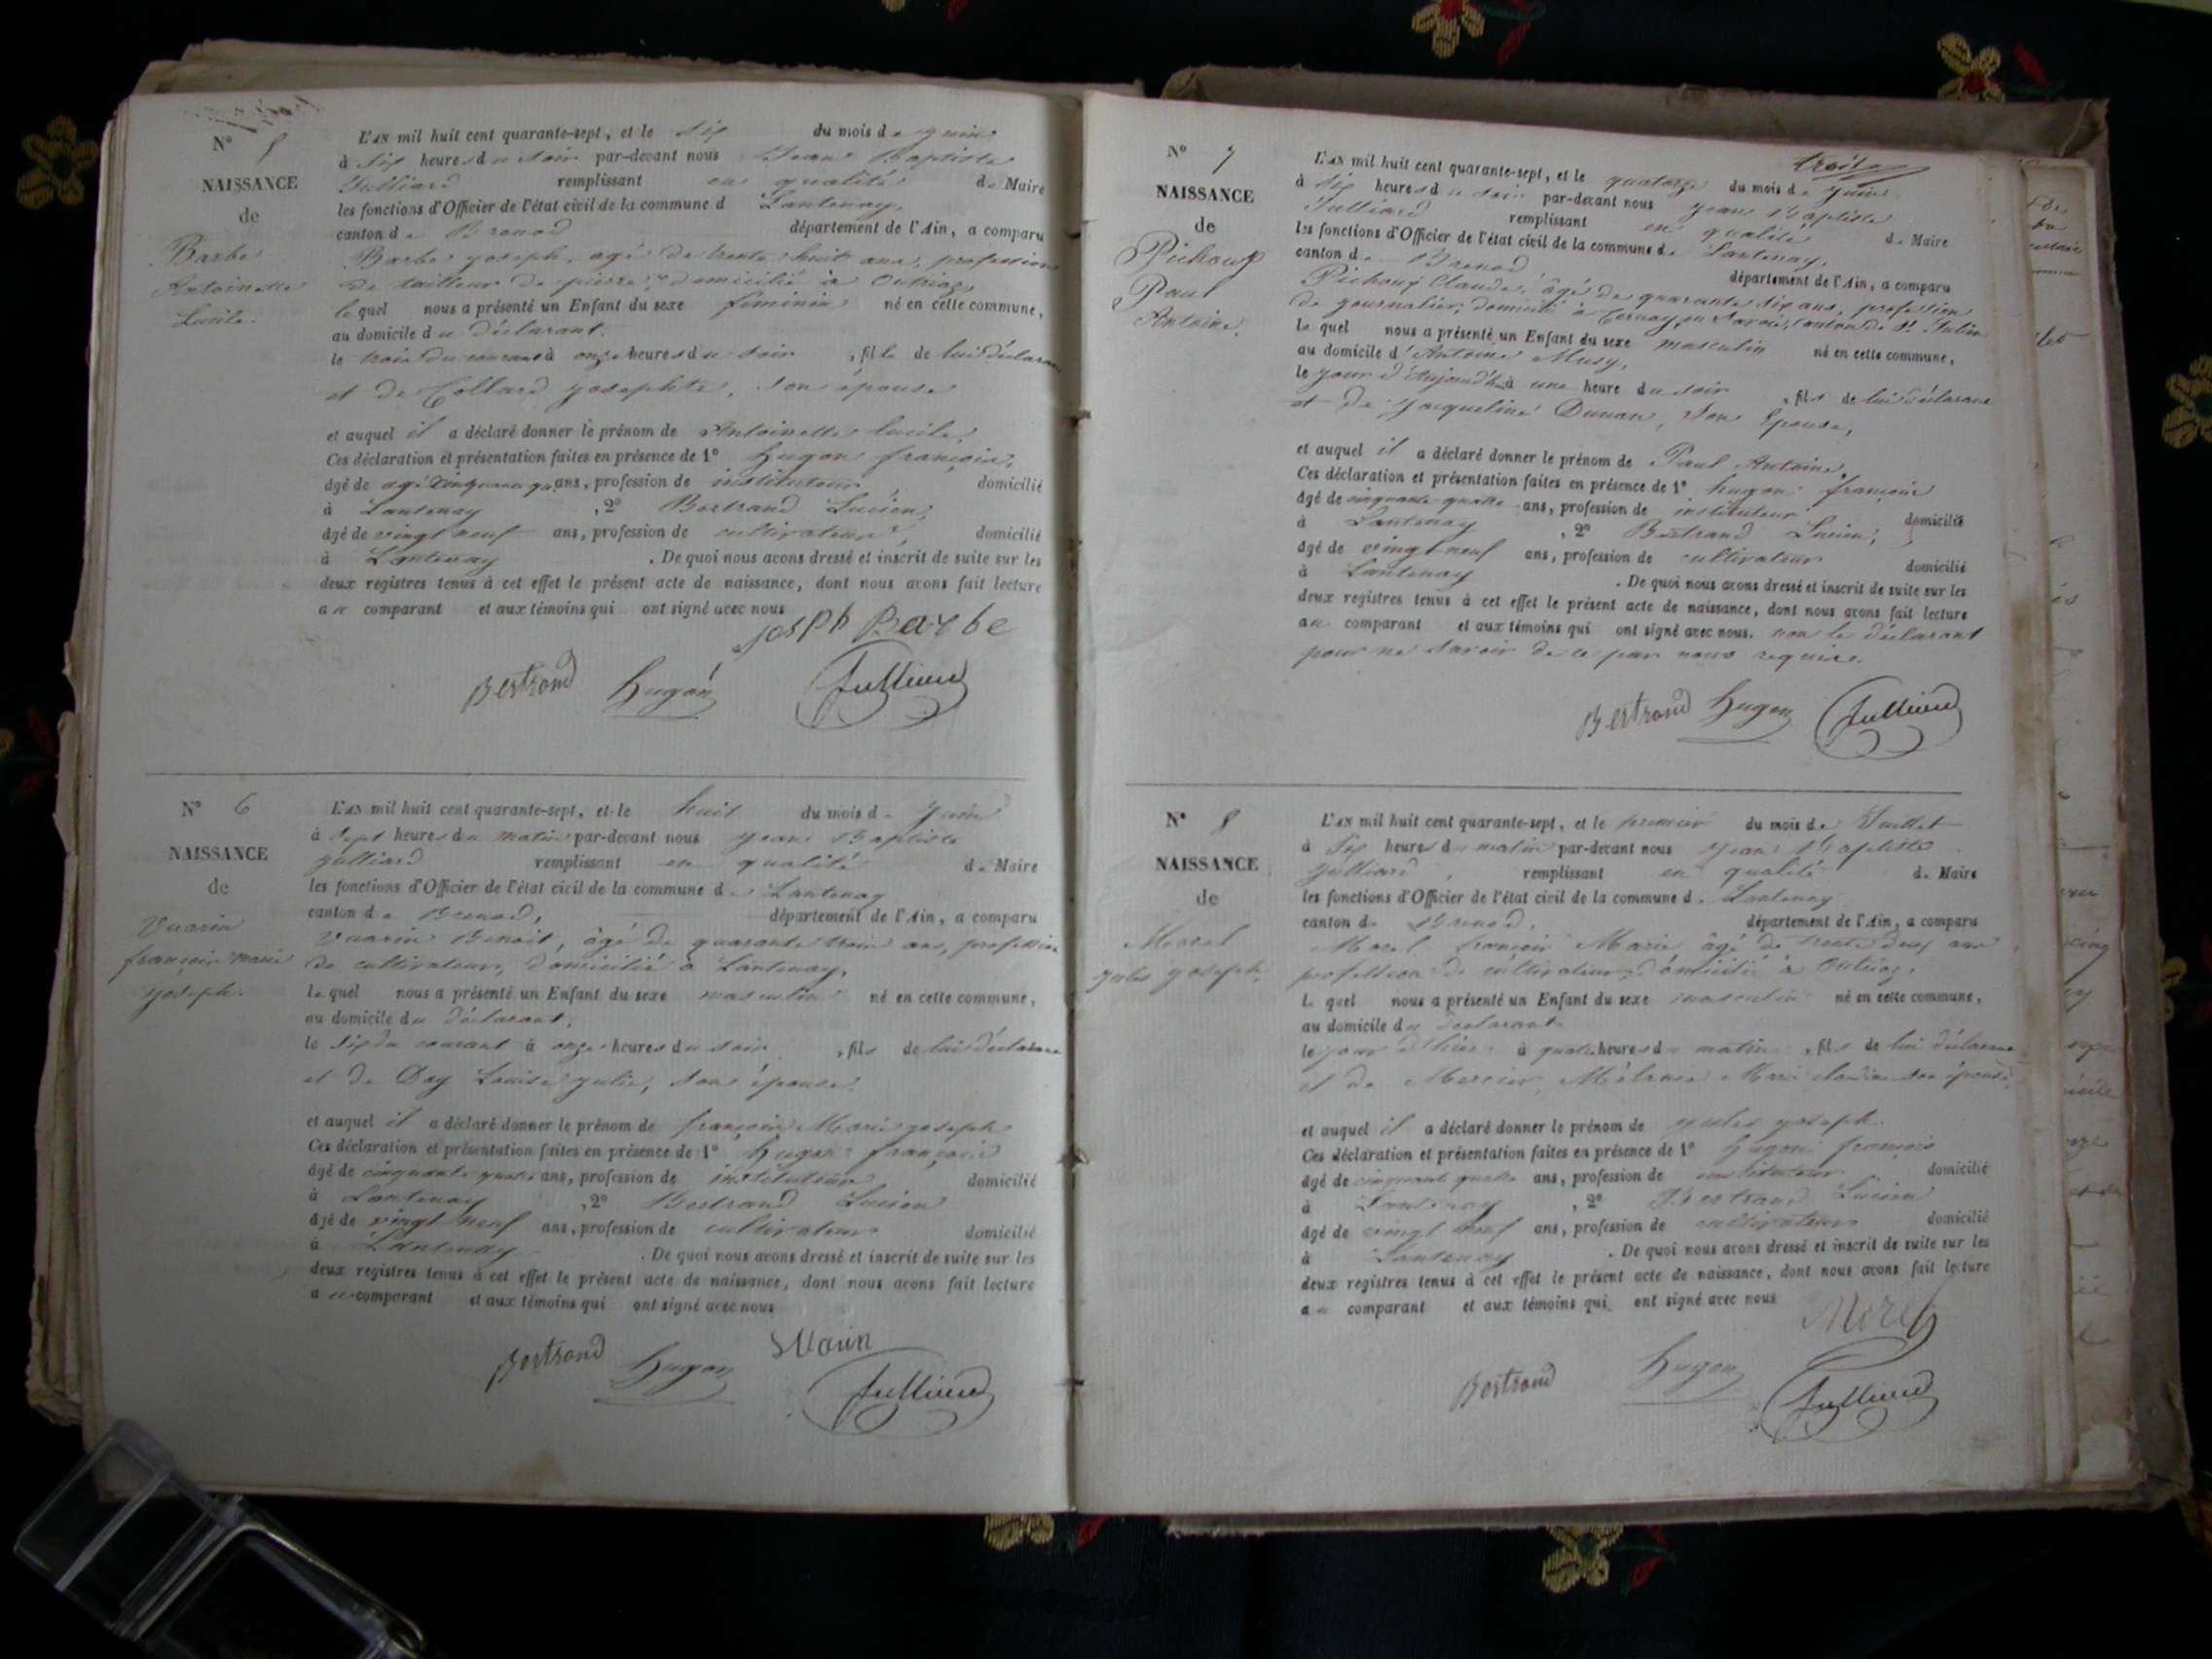 N° 5
NAISSANCE
de
Barbe
Antoinette
Lucile.
L'AN mil huit cent quarante-sept, et le six du mois de juin
à six heures du soir par-devant nous Jean Baptiste
Julliard remplissant en qualité de Maire
les fonctions d'Officier de l'état civil de la commune d Lantenay,
canton de Brenod département de l'Ain, a comparu
Barbe joseph, agé de trente huit ans, profession
de tailleur de pierre, domicilié à Outriaz,
lequel nous a présenté un Enfant du sexe féminin né en cette commune,
au domicile du déclarant.
le trois du courant à onze heures du soir, fille de lui déclarant
et de Collard josephte, son épouse
et auquel il a déclaré donner le prénom de Antoinette lucile,
Ces déclaration et présentation faites en présence de 1° hugon françois,
âgé de agé cinquante ans, profession de instituteur domicilié
à Lantenay, 2° Bertrand Lucien,
âgé de vingt neuf ans, profession de cultivateur, domicilié
à Lantenay. De quoi nous avons dressé et inscrit de suite sur les
deux registres tenus à cet effet le présent acte de naissance, dont nous avons fait lecture
au comparant et aux témoins qui ont signé avec nous
josph Barbe
Bertrand hugon Julliard
N° 6
NAISSANCE
de
Vuarin
françois marie
joseph.
L'AN mil huit cent quarante-sept, et le huit du mois de juin
à sept heures du matin par-devant nous jean Baptiste
julliard remplissant en qualité de Maire
les fonctions d'Officier de l'état civil de la commune de Lantenay
canton de Brenod, département de l'Ain, a comparu
Vuarin Benoit, âgé de quarante trois ans, profession
de cultivateur, domicilié à Lantenay,
lequel nous a présenté un Enfant du sexe masculin né en cette commune,
au domicile du déclarant,
le six du courant à onze heures du soir, fils de lui déclarant
et de Day Louise julie, son épouse.
et auquel il a déclaré donner le prénom de françois Marie joseph
Ces déclaration et présentation faites en présence de 1° hugon françois
âgé de cinquante quatre ans, profession de instituteur domicilié
à Lantenay, 2° Bertrand Lucien
âgé de vingt neuf ans, profession de cultivateur domicilié
à Lantenay. De quoi nous avons dressé et inscrit de suite sur les
deux registres tenus à cet effet le présent acte de naissance, dont nous avons fait lecture
au comparant et aux témoins qui ont signé avec nous
Bertrand hugon Julliard
trois
N° 7
NAISSANCE
de
Pichoux
Paul
Antoine.
L'AN mil huit cent quarante-sept, et le quatorze du mois de juin
à six heures du soir par-devant nous jean Baptiste
Julliard remplissant en qualité de Maire
les fonctions d'Officier de l'état civil de la commune de Lantenay,
canton de Brenod département de l'Ain, a comparu
Pichoux Claude, âgé de quarante six ans, profession
de journalier, domicilié à en Savoie, canton de St Julien
lequel nous a présenté un Enfant du sexe masculin né en cette commune,
au domicile d'Antoine Musy,
le jour d'aujourd'hui à une heure du soir, fils de lui déclarant
et de jacqueline Dunan, son épouse,
et auquel il a déclaré donner le prénom de Paul Antoine,
Ces déclaration et présentation faites en présence de 1° hugon françois
âgé de cinquante quatre ans, profession de instituteur domicilié
à Lantenay, 2° Bertrand Lucien,
âgé de vingt neuf ans, profession de cultivateur domicilié
à Lantenay. De quoi nous avons dressé et inscrit de suite sur les
deux registres tenus à cet effet le présent acte de naissance, dont nous avons fait lecture
au comparant et aux témoins qui ont signé avec nous. non le déclarant
pour ne savoir de ce par nous requise.
Bertrand hugon Julliard
N° 8
NAISSANCE
de
Morel
jules joseph.
L'AN mil huit cent quarante-sept, et le premier du mois de Juillet
à six heures du matin par-devant nous jean Baptiste
julliard, remplissant en qualité de Maire
les fonctions d'Officier de l'état civil de la commune de Lantenay
canton de Brenod, département de l'Ain, a comparu
Morel françois Marie âgé de trente deux ans
profession de cultivateur, domicilié à Outriaz,
lequel nous a présenté un Enfant du sexe masculin né en cette commune,
au domicile du déclarant
le jour d'hier à quatre heures du matin, fils de lui déclarant
et de Mercier Mélanie Marie claudine son épouse,
et auquel il a déclaré donner le prénom de jules joseph.
Ces déclaration et présentation faites en présence de 1° hugon françois
âgé de cinquante quatre ans, profession de instituteur domicilié
à Lantenay, 2° Bertrand Lucien
âgé de vingt neuf ans, profession de cultivateur domicilié
à Lantenay. De quoi nous avons dressé et inscrit de suite sur les
deux registres tenus à cet effet le présent acte de naissance, dont nous avons fait lecture
au comparant et aux témoins qui ont signé avec nous
Morel
Bertrand hugon Julliard